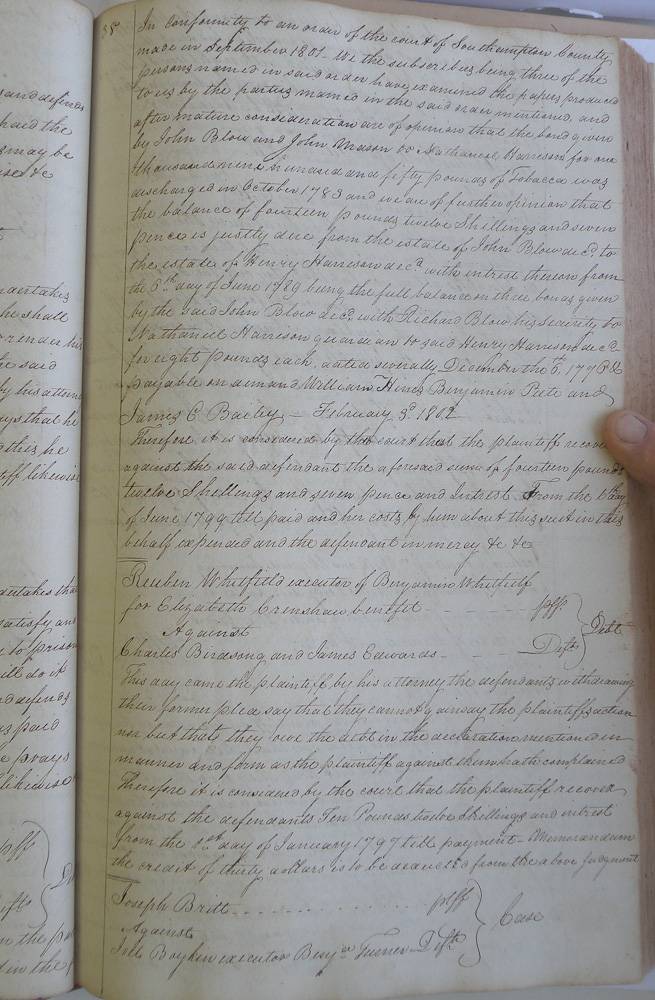 and defends
said the
may be
&c
undertakes
he shall
render his
he said
by his attorn
says that he
this he
tiff likewise
undertakes that
satisfy and
to prison
will do it
nd defends
paid
prays
likewise
plff
in the
d in the
In conformity to an order of the court of Southampton County
made in September 1801. We the subscribers being three of the
persons named in said order have examined the papers produced
to us by the parties named in the said order mentioned, and
after mature consideration are of opinion that the bond given
by John Blow and John Mason to Nathaniel Harrison for one
thousand nine hundred and fifty pounds of Tobacco was
discharged in October 1783 and we are of further opinion that
the balance of fourteen pounds twelve Shillings and seven
pence is justly due from the estate of John Blow decd. to
the estate of Henry Harrison decd. with intrest thereon from
the 6th day of June 1789 being the full balance on three bonds given
by the said John Blow decd. with Richard Blow his Security to
Nathaniel Harrison guardian to said Henry Harrison decd
for eight pounds each, dated severally December the 6th, 1778 &
payable on demand William Hines Benjamin Pete and
James C Bailey — February 3d 1802
Therefore it is considered by the court that the plaintiff recover
against the said defendant the aforesaid sum of fourteen pounds
twelve Shillings and seven pence and Intrest From the 6th day
of June 1799 till paid and her costs by him about this suit in this
behalf expended and the defendant in mercy &c &c
Reuben Whitfield executor of Benjamin Whitfield
for Elizabeth Crenshaw benefit - - - - - plff.
Against
Debt
Charles Birdsong and James Edwards - - - - Defts
This day came the plaintiff by his attorney the defendants withdrawing
their former plea say that they cannot gainsay the plaintiffs action
nor but that they owe the debt in the declaration mentioned in
manner and form as the plaintiff against them hath complained
Therefore it is considered by the court that the plaintiff recover
against the defendants Ten Pounds twelve Shillings and intrest
from the 1st day of January 1797 till payment - Memorandum
the credit of thirty dollars is to be deducted from the above judgment
Joseph Britt - - - - - - - - - - plff
Against
Case
Boykin executor Benjn Turner Deft